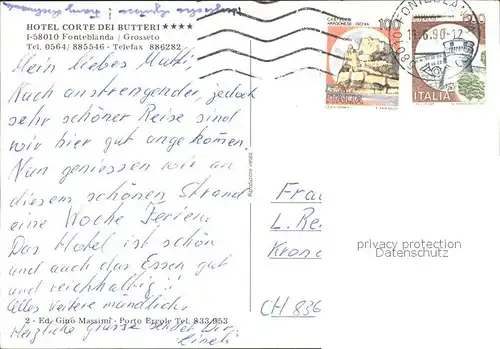 HOTEL CORTE DEI BUTTERI ★★★★
I-58010 Fonteblanda / Grosseto
Tel. 0564 / 885546 - Telefax 886282
Mein liebes Mutti,
Nach anstrengender, jedoch
sehr schöner Reise sind
wir hier gut angekommen.
Nun geniessen wir an
diesem schönen Strand
eine Woche Ferien.
Das Hotel ist schön
und auch das Essen gut
und reichhaltig!!
Alles weitere mündlich.
Herzliche Grüsse sendet Dir
2 - Ed. Gino Massimi - Porto Ercole Tel. 833.953
CASTELLO
ARAGONESE - ISCHIA
100
ITALIA
ITALIA
58010 FONTEBLANDA
6.90-12
Frau
L. Re
Krone
CH 836
privacy protection
Datenschutz